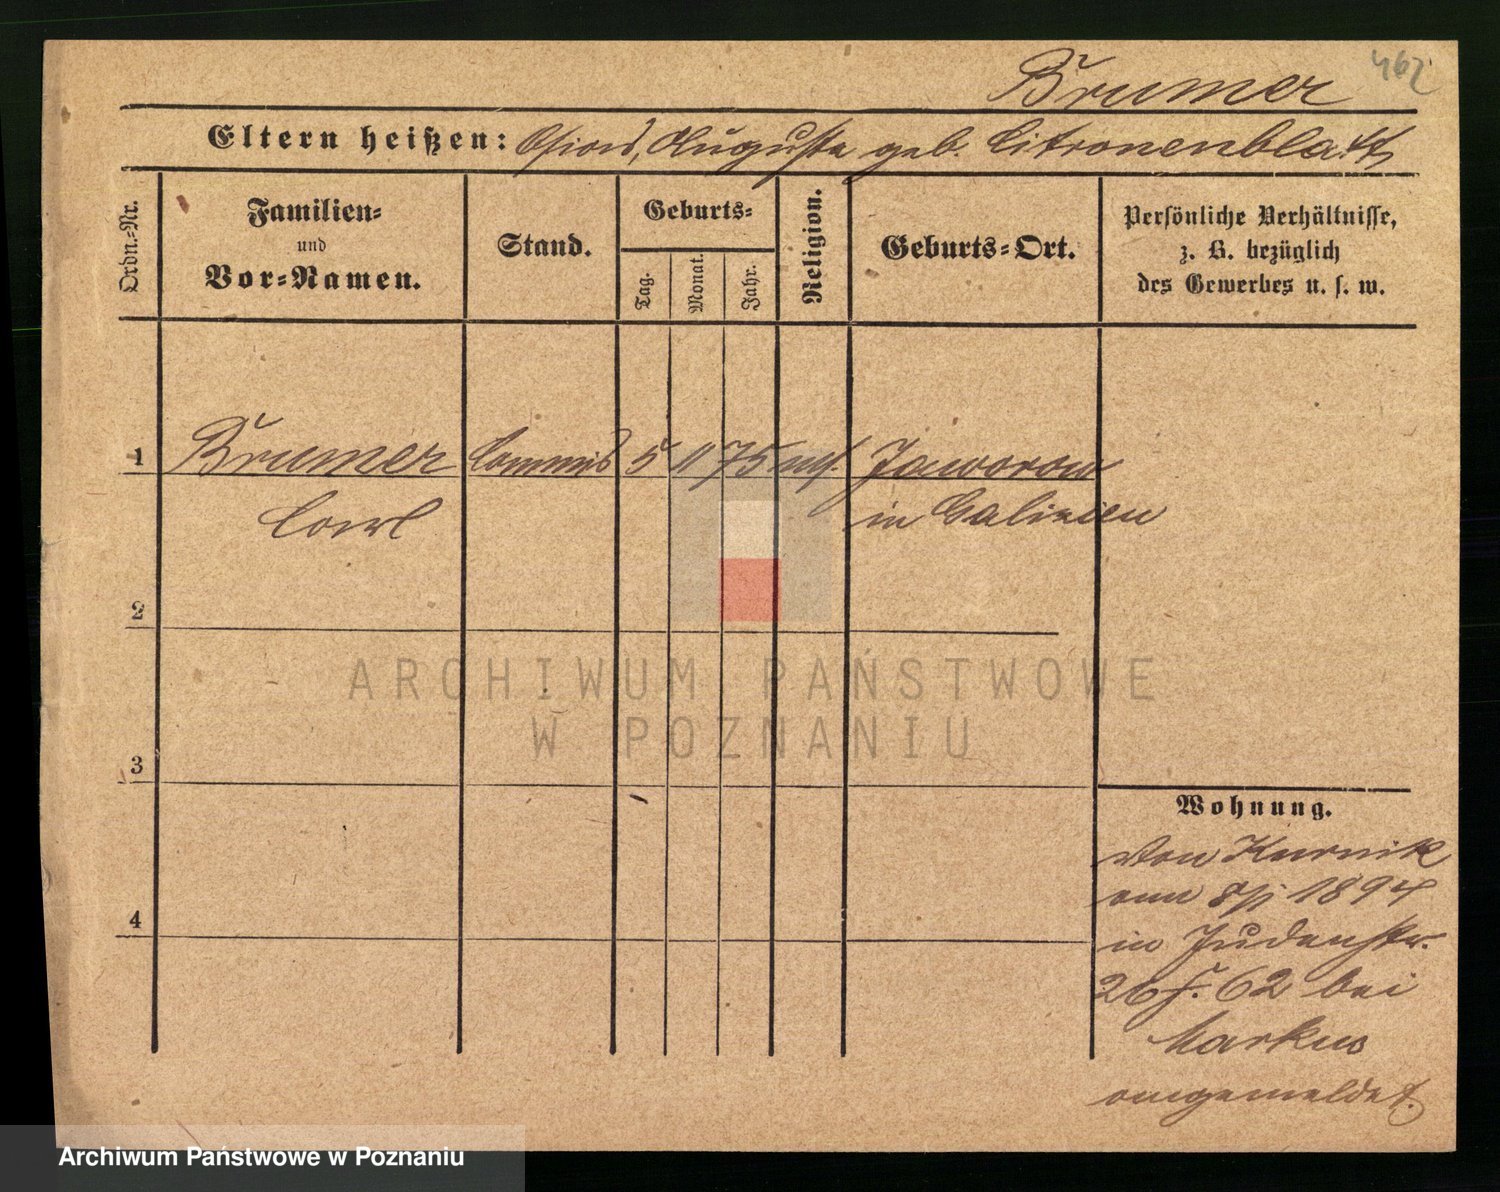 462
Brumer
Eltern heißen: Osias, Auguste geb. Citronenblatt
Ordn.-Nr.
Familien- und Vor-Namen.
Stand.
Geburts-
Tag.
Monat.
Jahr.
Religion.
Geburts-Ort.
Persönliche Verhältnisse,
z. B. bezüglich
des Gewerbes u. s. w.
1 Brumer Commis 5 11 75 mos. Jaworow
Carl in Galizien
2
3
4
Wohnung.
Von Kurnik
am 8/1 1894
in Judenstr.
26 f. 62 bei
Markus
angemeldet.
ARCHIWUM PAŃSTWOWE
W POZNANIU
Archiwum Państwowe w Poznaniu